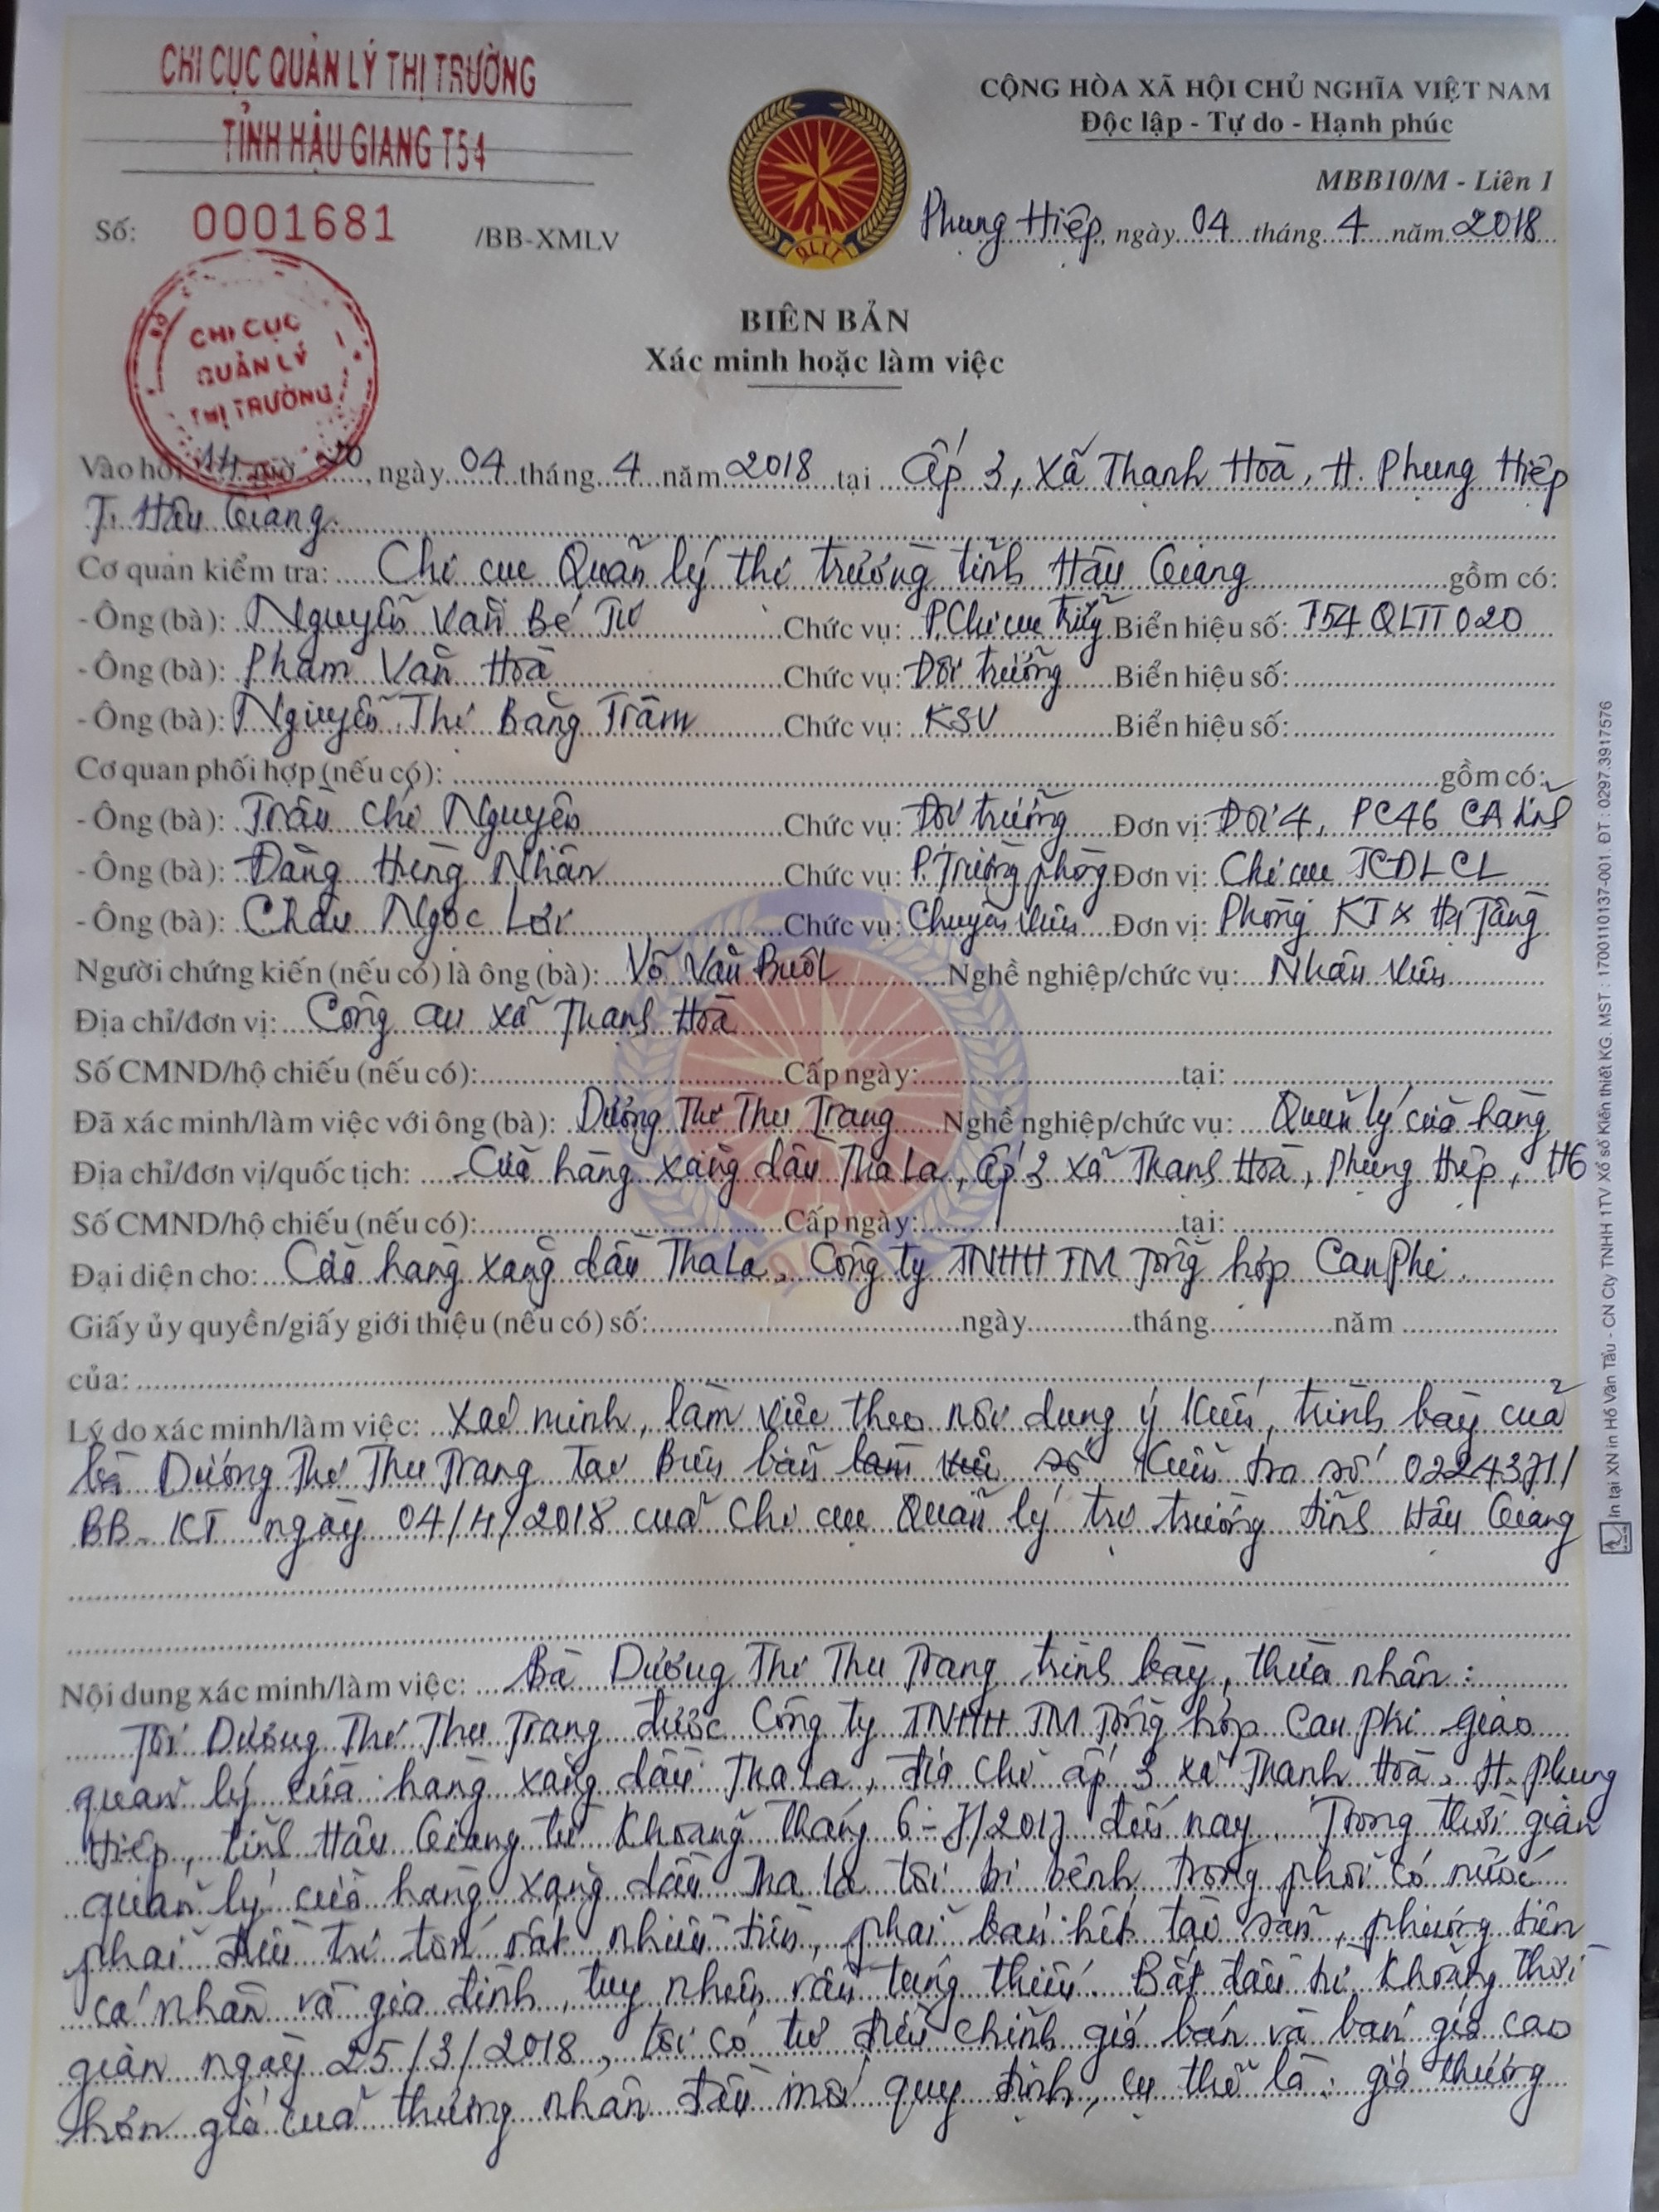 CHI CỤC QUẢN LÝ THỊ TRƯỜNG
TỈNH HẬU GIANG T54
CỘNG HÒA XÃ HỘI CHỦ NGHĨA VIỆT NAM
Độc lập - Tự do - Hạnh phúc
MBB10/M - Liên 1
Số: 0001681 /BB-XMLV
Phụng Hiệp, ngày 04 tháng 4 năm 2018
QLTT
CHI CỤC
QUẢN LÝ
THỊ TRƯỜNG
BIÊN BẢN
Xác minh hoặc làm việc
Vào hồi 14 giờ 20, ngày 04 tháng 4 năm 2018 tại Ấp 3, xã Thạnh Hoà, H. Phụng Hiệp
T. Hậu Giang.
Cơ quan kiểm tra: Chi cục Quản lý thị trường tỉnh Hậu Giang gồm có:
- Ông (bà): Nguyễn Văn Bé Tư Chức vụ: P. Chi cục trưởng Biển hiệu số: T54 QLTT 020
- Ông (bà): Phạm Văn Hoà Chức vụ: Đội trưởng Biển hiệu số:
- Ông (bà): Nguyễn Thị Băng Trâm Chức vụ: KSV Biển hiệu số:
Cơ quan phối hợp (nếu có): gồm có:
- Ông (bà): Trần Chí Nguyện Chức vụ: Đội trưởng Đơn vị: Đội 4, PC46 CA tỉnh
- Ông (bà): Đặng Hùng Nhân Chức vụ: P. Trưởng phòng Đơn vị: Chi cục TCĐLCL
- Ông (bà): Châu Ngọc Lợi Chức vụ: Chuyên viên Đơn vị: Phòng KT x Hạ Tầng
Người chứng kiến (nếu có) là ông (bà): Võ Văn Buôl Nghề nghiệp/chức vụ: Nhân viên
Địa chỉ/đơn vị: Công an xã Thạnh Hoà
Số CMND/hộ chiếu (nếu có): Cấp ngày: tại:
Đã xác minh/làm việc với ông (bà): Dương Thị Thu Trang Nghề nghiệp/chức vụ: Quản lý cửa hàng
Địa chỉ/đơn vị/quốc tịch: Cửa hàng xăng dầu Tha La, ấp 3 xã Thạnh Hoà, Phụng Hiệp, HG
Số CMND/hộ chiếu (nếu có): Cấp ngày: tại:
Đại diện cho: Cửa hàng xăng dầu Tha La, Công ty TNHH TM Tổng hợp Can Phi.
Giấy ủy quyền/giấy giới thiệu (nếu có) số: ngày tháng năm
của:
Lý do xác minh/làm việc: Xác minh, làm việc theo nội dung ý kiến, trình bày của
bà Dương Thị Thu Trang tại Biên bản làm việc số kiểm tra số 0224371/
BB-KT ngày 04/4/2018 của Chi cục Quản lý thị trường tỉnh Hậu Giang
Nội dung xác minh/làm việc: Bà Dương Thị Thu Trang trình bày, thừa nhận:
Tôi Dương Thị Thu Trang được Công ty TNHH TM Tổng hợp Can Phi giao
quản lý cửa hàng xăng dầu Tha La, địa chỉ ấp 3 xã Thạnh Hoà, H. Phụng
Hiệp, tỉnh Hậu Giang từ khoảng tháng 6-7/2017 đến nay. Trong thời gian
quản lý cửa hàng xăng dầu Tha La tôi bị bệnh trong phổi có nước
phải điều trị tốn rất nhiều tiền, phải bán hết tài sản, phương tiện
cá nhân và gia đình, tuy nhiên vẫn túng thiếu. Bắt đầu từ khoảng thời
gian ngày 25/3/2018, tôi có tự điều chỉnh giá bán và bán giá cao
hơn giá của thương nhân đầu mối quy định, cụ thể là: giá thương
In tại XN in Hồ Văn Tẩu - CN Cty TNHH 1TV Xổ số Kiến thiết KG. MST: 1700110137-001. ĐT: 0297.3917576